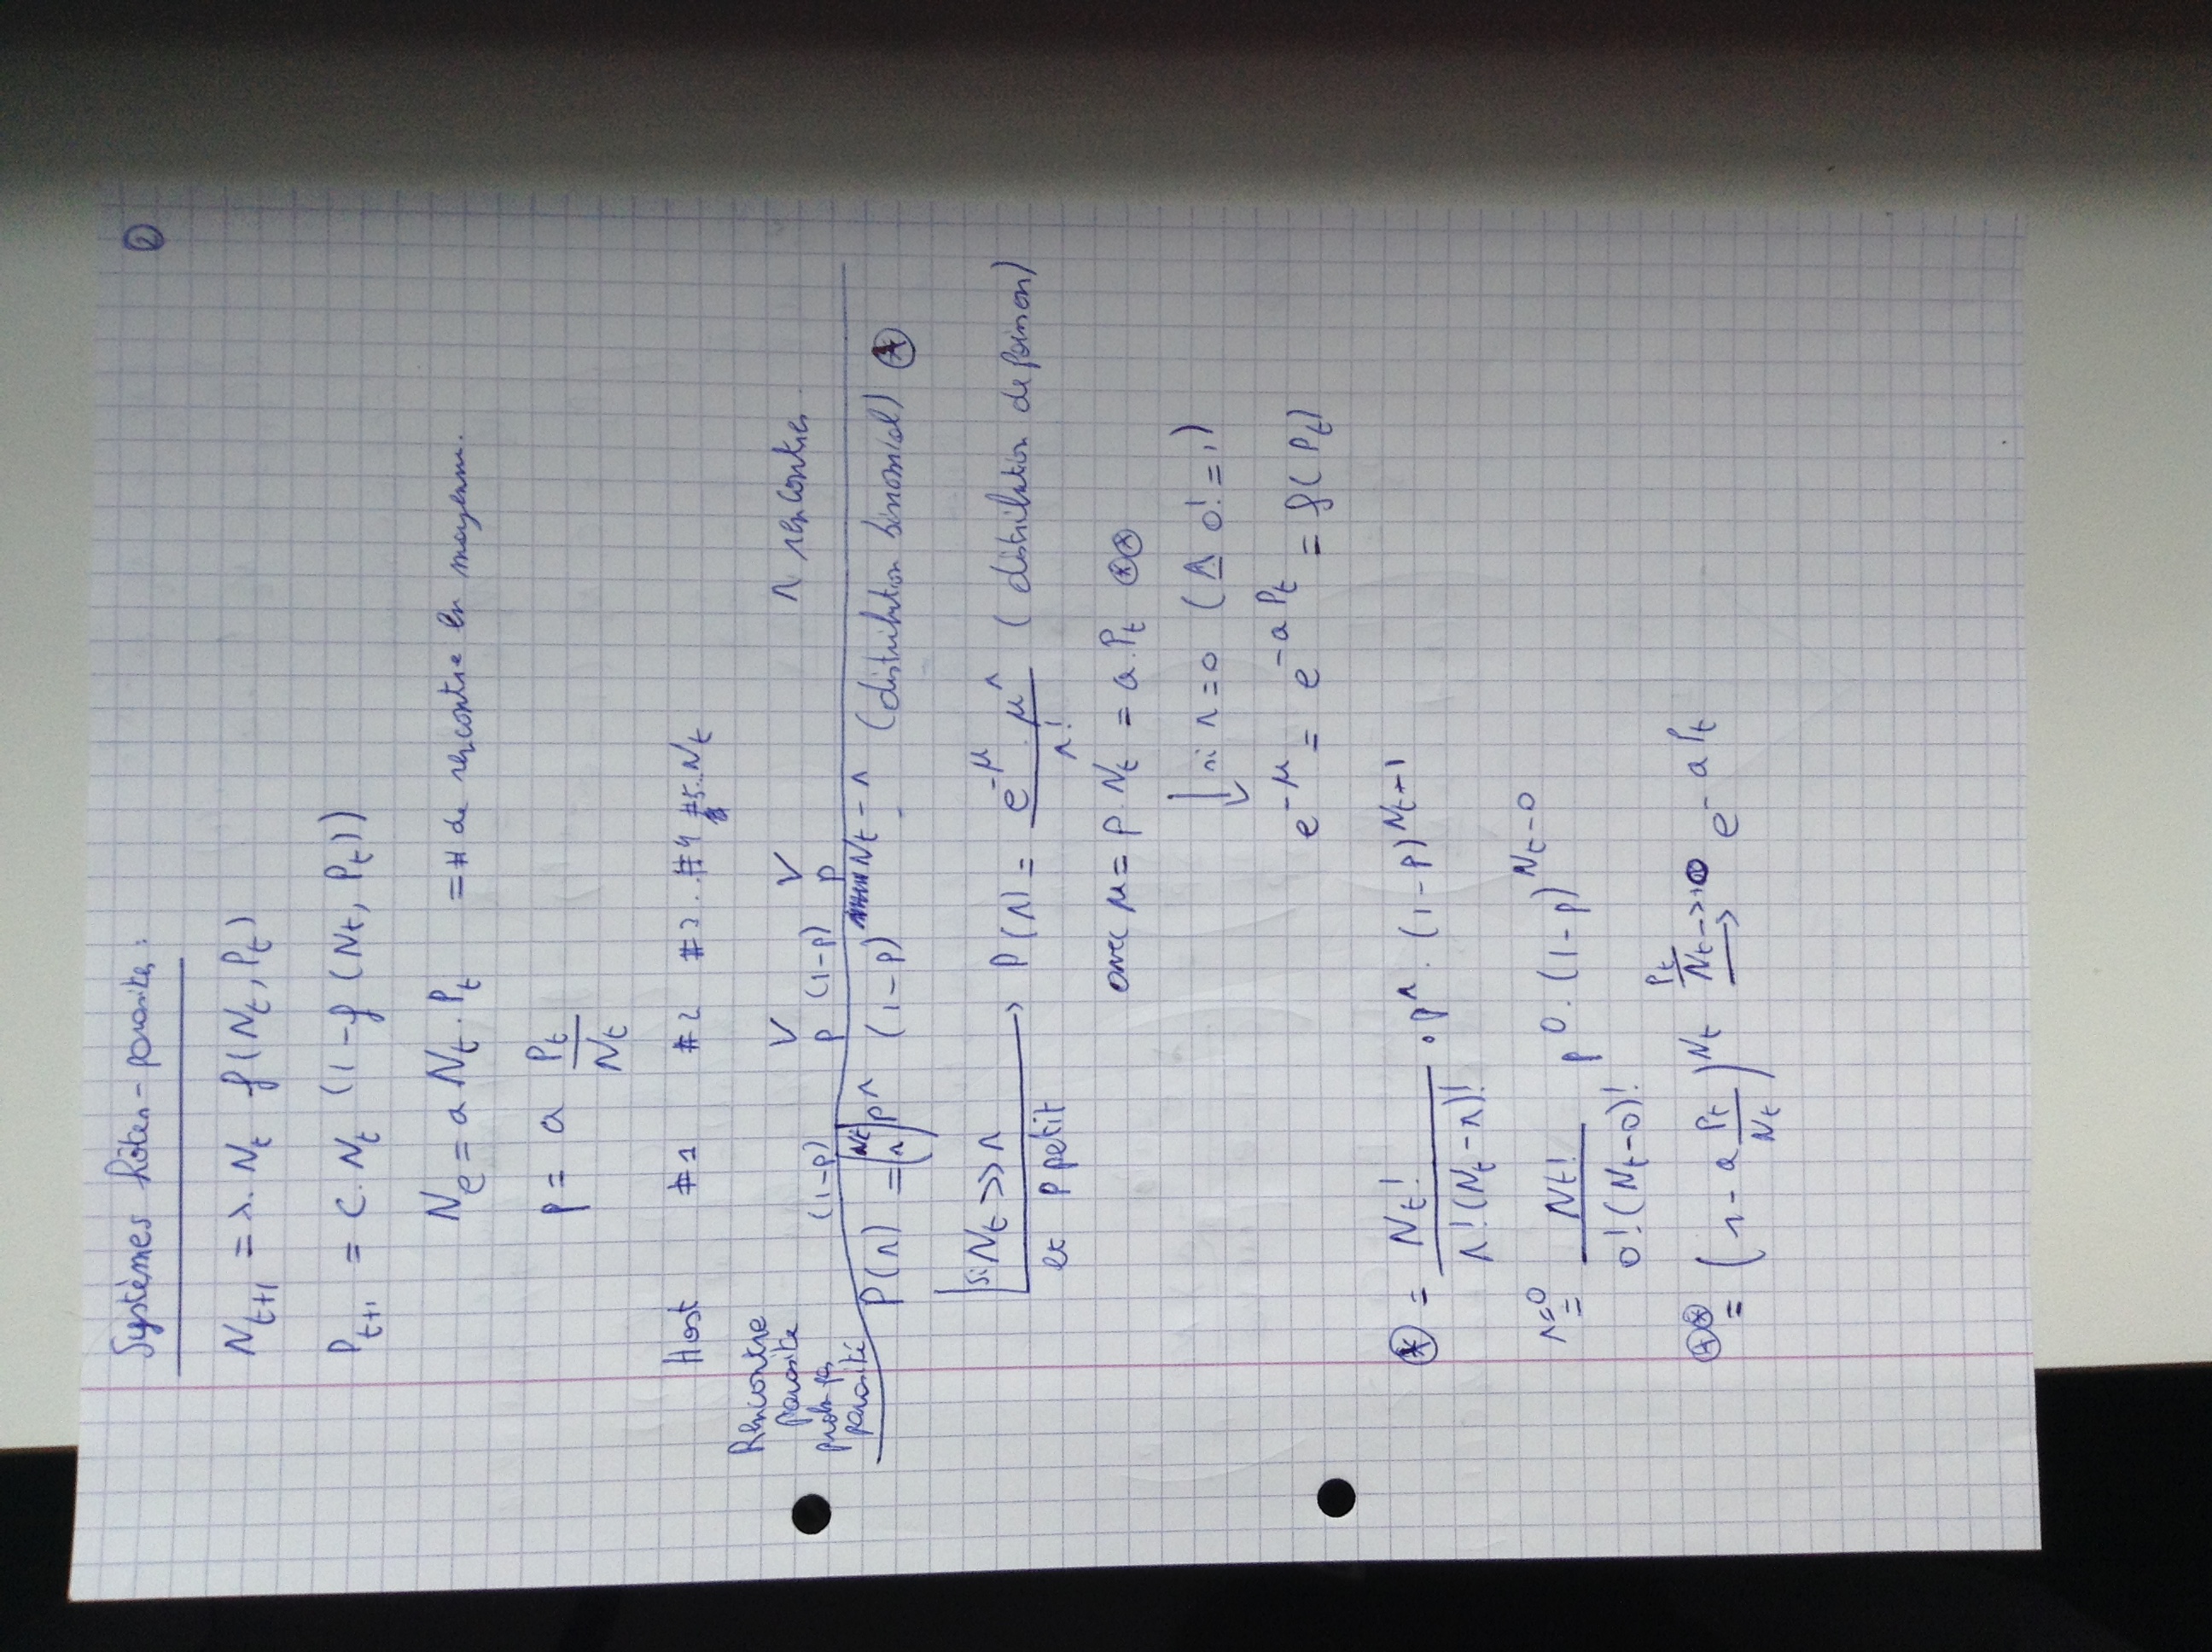 ①
Systèmes hôtes-parasites :
N_{t+1} = λ. N_t f(N_t, P_t)
P_{t+1} = C. N_t (1 - f (N_t, P_t))
N_e = a N_t . P_t = # de rencontre en moyenne.
p = a P_t / N_t
Host #1 #2 #3 . #4 #5..N_t
Rencontre parasite V V n rencontres
prob parasité (1-p) p (1-p) p
P(n) = (N_t n) p^n (1-p)^{N_t - n} (distribution binomial) (*)
si N_t >> n et p petit → P(n) = e^{-μ} . μ^n / n! (distribution de poisson)
avec μ = p. N_t = a. P_t (*)(*)
↓ si n = 0 (A 0! = 1)
e^{-μ} = e^{-a P_t} = f(P_t)
(*) = N_t! / n! (N_t - n)! . p^n . (1-p)^{N_t+1}
n=0 = N_t! / 0! (N_t - 0)! p^0 . (1-p)^{N_t - 0}
(*)(*) = (1 - a P_t / N_t)^{N_t} P_t / N_t → 0 e^{-a P_t}